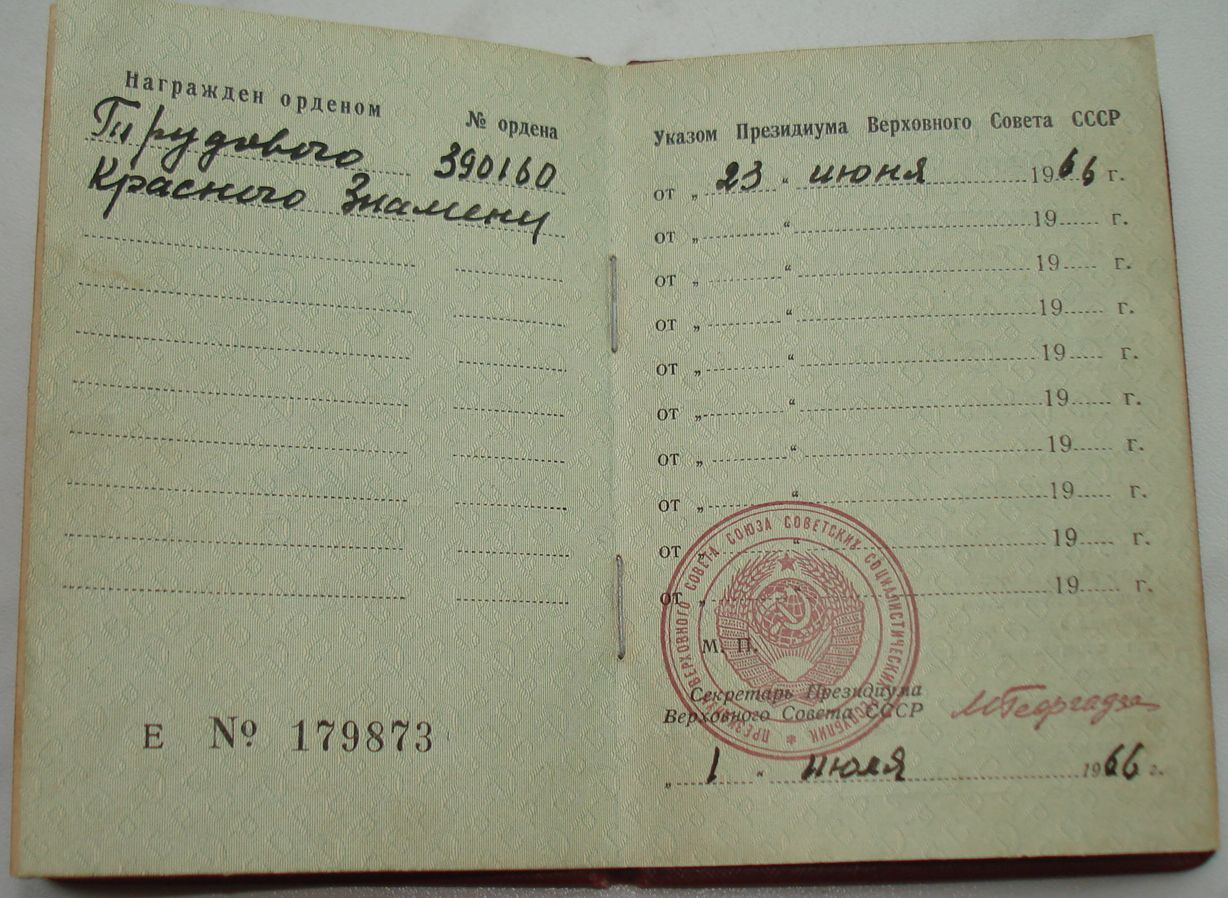 Награжден орденом № ордена
Трудового 390160
Красного Знамени
Е № 179873
Указом Президиума Верховного Совета СССР
от „ 23 “ июня 1966 г.
от „ “ 19 г.
от „ “ 19 г.
от „ “ 19 г.
от „ “ 19 г.
от „ “ 19 г.
от „ “ 19 г.
от „ “ 19 г.
от „ “ 19 г.
от „ 19 г.
ПРЕЗИДИУМ ВЕРХОВНОГО СОВЕТА СОЮЗА СОВЕТСКИХ СОЦИАЛИСТИЧЕСКИХ РЕСПУБЛИК
М. П.
Секретарь Президиума
Верховного Совета СССР МГеоргадзе
„ 1 “ июля 1966 г.